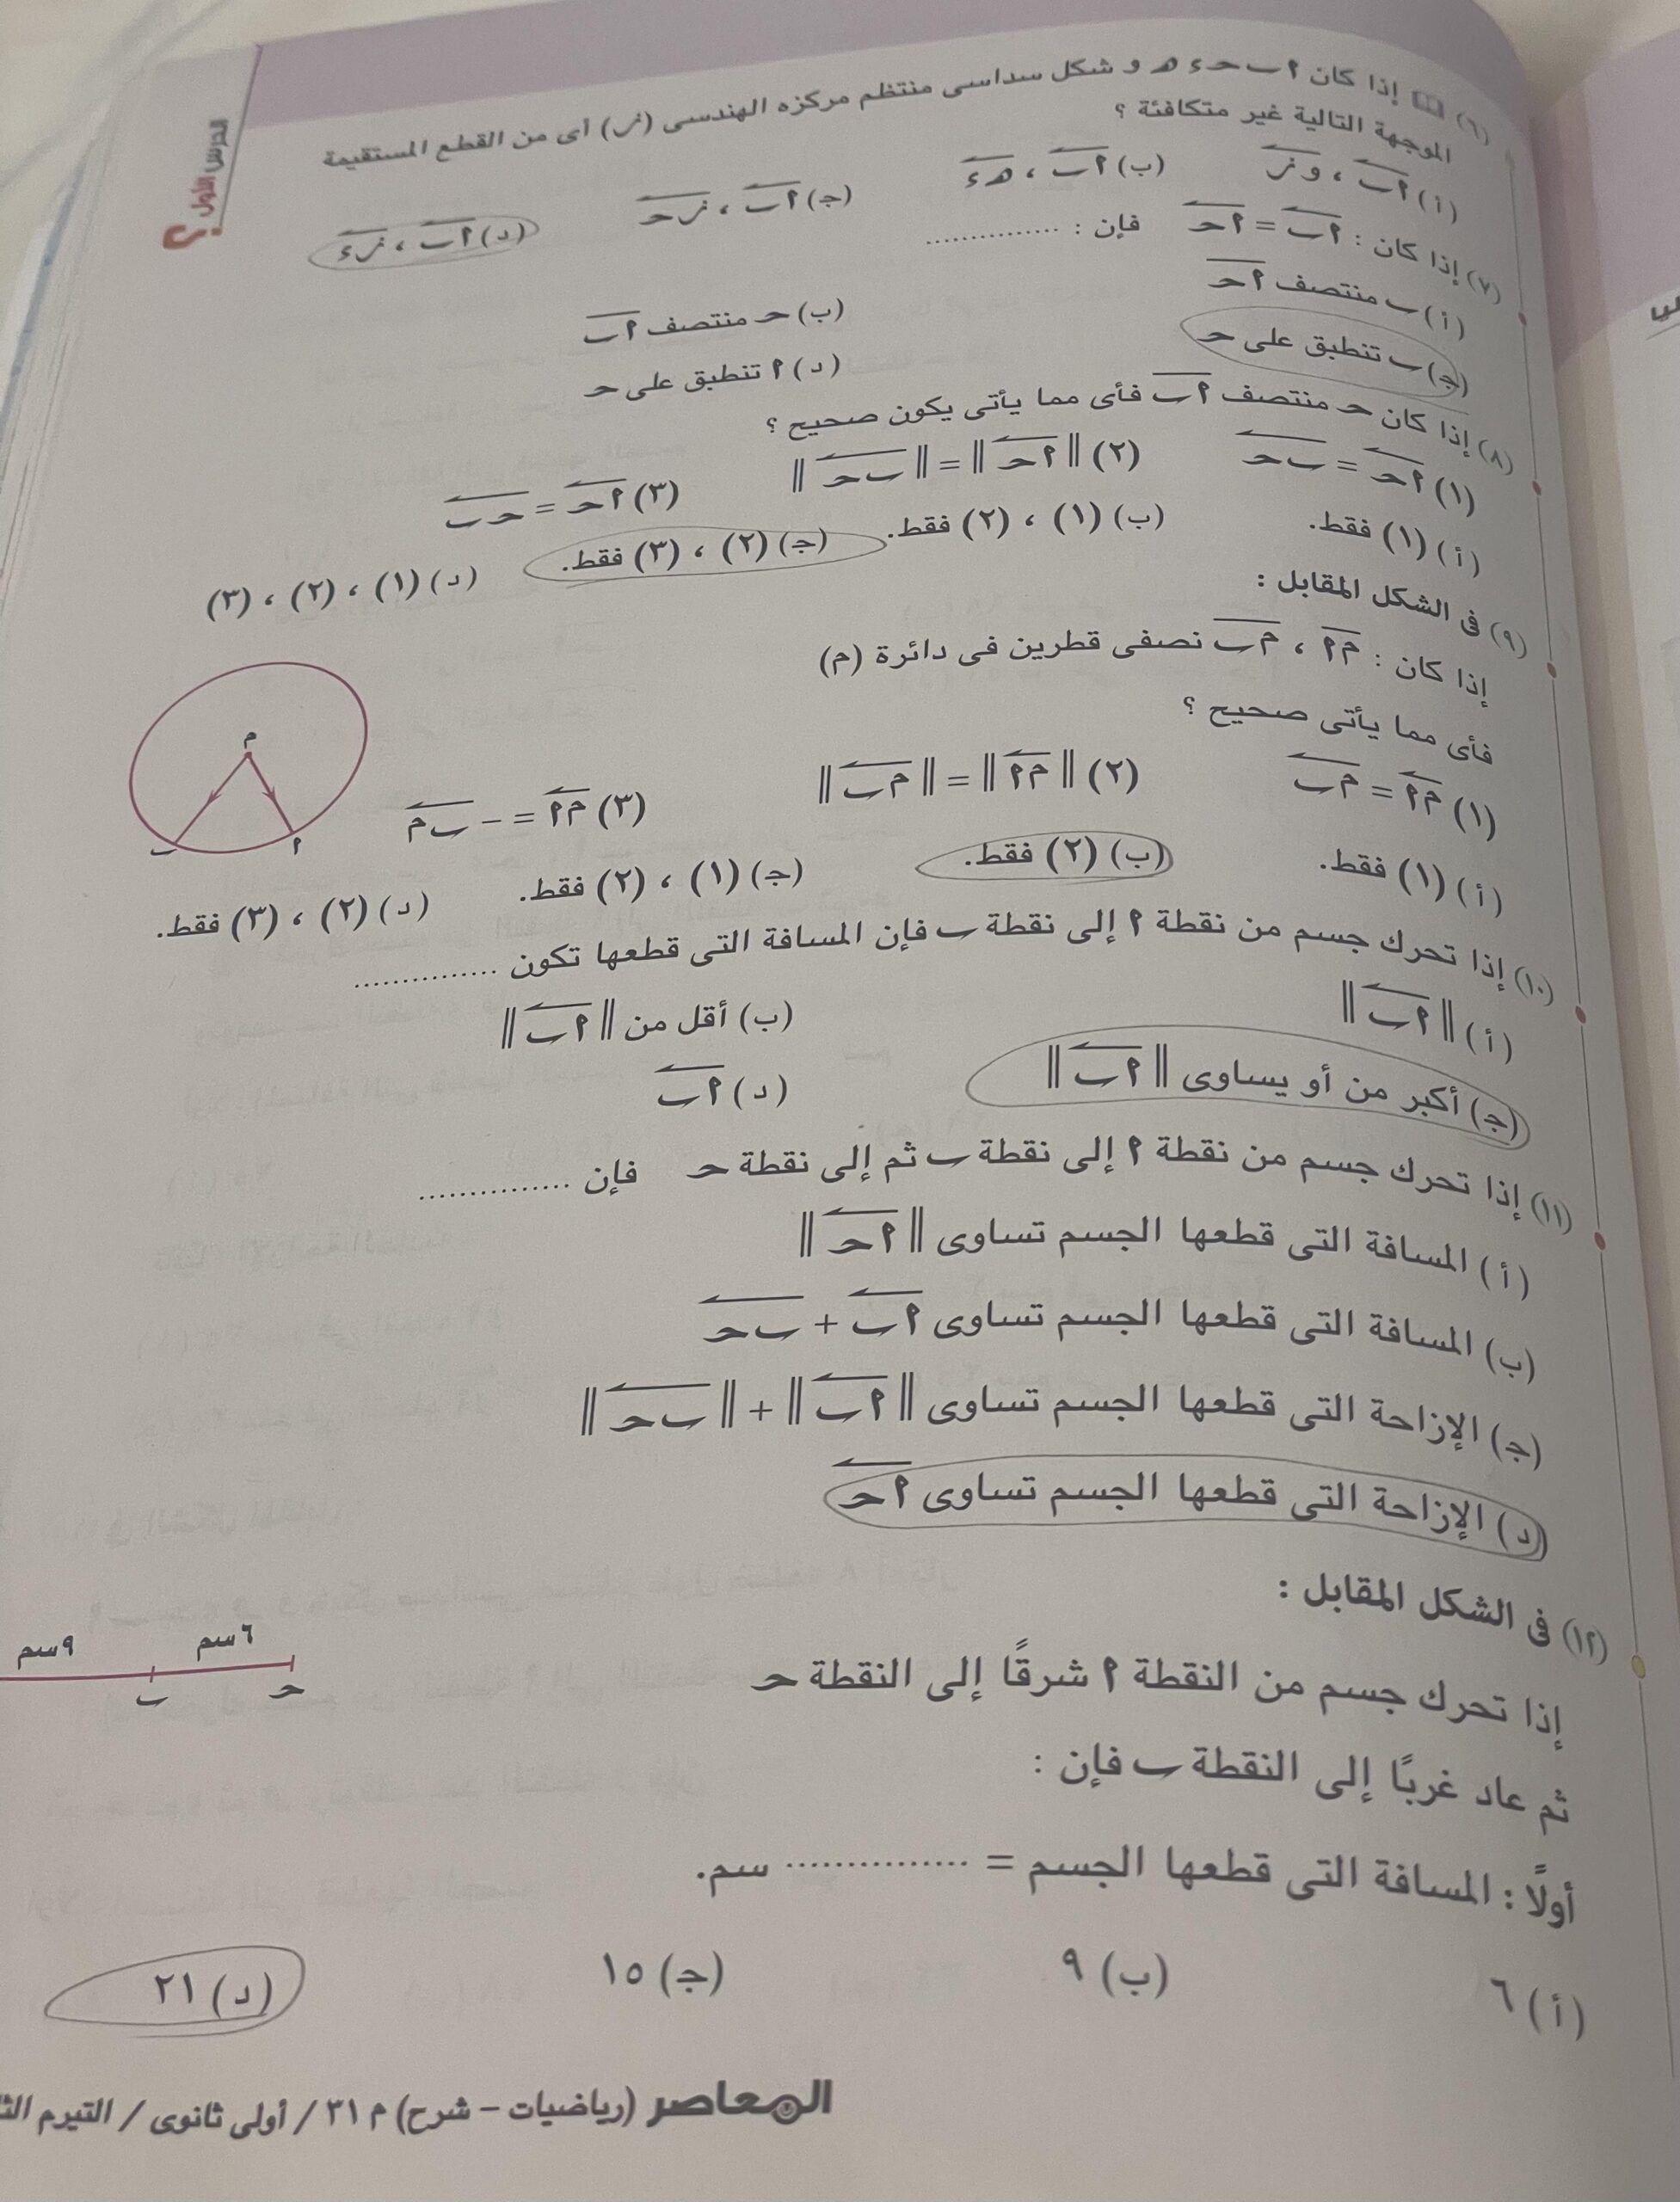 الدرس الأول
(٦) إذا كان أ ب ح ء هـ و شكل سداسى منتظم مركزه الهندسى (ز) أى من القطع المستقيمة
الموجهة التالية غير متكافئة ؟
(أ) أب ، وز (ب) أب ، هـء (جـ) أب ، زح (د) أب ، زء
(٧) إذا كان : أب = أح فإن : ...............
(أ) ب منتصف أح (ب) ح منتصف أب
(جـ) ب تنطبق على ح (د) أ تنطبق على ح
(٨) إذا كان ح منتصف أب فأى مما يأتى يكون صحيح ؟
(١) أح = بح (٢) ||أح|| = ||بح|| (٣) أح = حب
(أ) (١) فقط. (ب) (١) ، (٢) فقط. (جـ) (٢) ، (٣) فقط. (د) (١) ، (٢) ، (٣)
(٩) فى الشكل المقابل :
إذا كان : مأ ، مب نصفى قطرين فى دائرة (م)
فأى مما يأتى صحيح ؟
(١) مأ = مب (٢) ||مأ|| = ||مب|| (٣) مأ = – بم
م
ب أ
(أ) (١) فقط. (ب) (٢) فقط. (جـ) (١) ، (٢) فقط. (د) (٢) ، (٣) فقط.
(١٠) إذا تحرك جسم من نقطة أ إلى نقطة ب فإن المسافة التى قطعها تكون ...............
(أ) ||أب|| (ب) أقل من ||أب||
(جـ) أكبر من أو يساوى ||أب|| (د) أب
(١١) إذا تحرك جسم من نقطة أ إلى نقطة ب ثم إلى نقطة ح فإن ...............
(أ) المسافة التى قطعها الجسم تساوى ||أح||
(ب) المسافة التى قطعها الجسم تساوى أب + بح
(جـ) الإزاحة التى قطعها الجسم تساوى ||أب|| + ||بح||
(د) الإزاحة التى قطعها الجسم تساوى أح
(١٢) فى الشكل المقابل :
٦سم ٩سم
ح ب
إذا تحرك جسم من النقطة أ شرقًا إلى النقطة ح
ثم عاد غربًا إلى النقطة ب فإن :
أولًا : المسافة التى قطعها الجسم = ............... سم.
(أ) ٦ (ب) ٩ (جـ) ١٥ (د) ٢١
المعاصر (رياضيات – شرح) م ٣١ / أولى ثانوى / التيرم